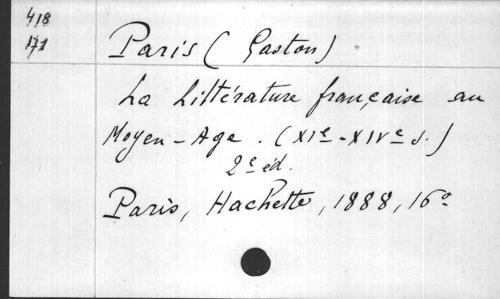 418
171
Paris (Gaston)
La littérature française au
Moyen-Age. (XIe-XIVe s.)
2e éd.
Paris, Hachette, 1888, 16o